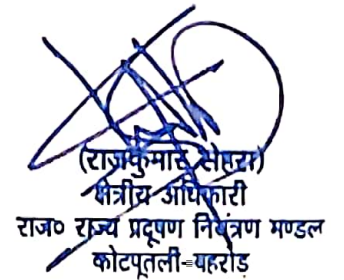 (राजकुमार सेहरा)
क्षेत्रीय अधिकारी
राज० राज्य प्रदूषण नियंत्रण मण्डल
कोटपूतली-बहरोड़